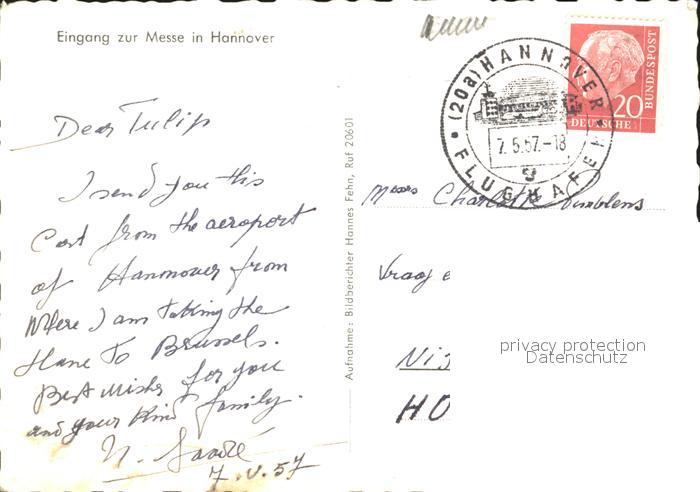 Eingang zur Messe in Hannover
Dear Tulip
I send you this
Card from the aeroport
of Hannover from
Where I am taking the
Plane to Brussels.
Best wishes for you
and your kind family.
7.V.57
Aufnahme: Bildberichter Hannes Fehn, Ruf 20601
(20a) HANNOVER
7.5.57.-18
g
FLUGHAFEN
20
DEUTSCHE
BUNDESPOST
Charlotte
privacy protection
Datenschutz
HO